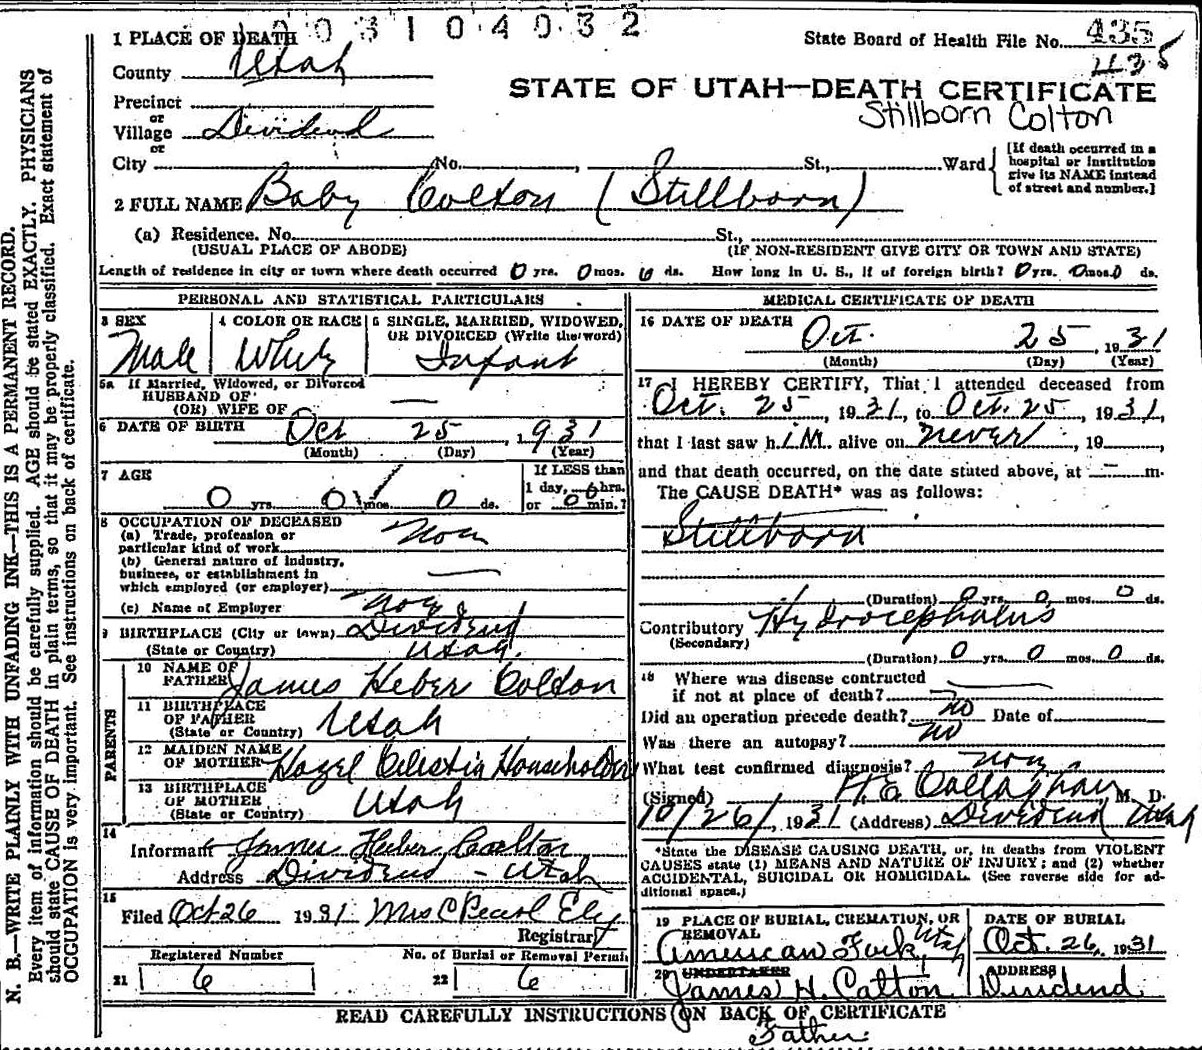 0 0 3 1 0 4 0 3 2
1 PLACE OF DEATH
State Board of Health File No. 435
435
County Utah
STATE OF UTAH—DEATH CERTIFICATE
Stillborn Colton
Precinct
or
Village Dividend
or
City No. , St., Ward
[If death occurred in a hospital or institution give its NAME instead of street and number.]
2 FULL NAME Baby Colton (Stillborn)
(a) Residence. No. St.,
(USUAL PLACE OF ABODE) (IF NON-RESIDENT GIVE CITY OR TOWN AND STATE)
Length of residence in city or town where death occurred 0 yrs. 0 mos. 0 ds. How long in U. S., if of foreign birth? 0 yrs. 0 mos. 0 ds.
PERSONAL AND STATISTICAL PARTICULARS
3 SEX
Male
4 COLOR OR RACE
White
5 SINGLE, MARRIED, WIDOWED, OR DIVORCED (Write the word)
Infant
5a If Married, Widowed, or Divorced
HUSBAND OF
(OR) WIFE OF —
6 DATE OF BIRTH Oct 25, 1931
(Month) (Day) (Year)
7 AGE
0 yrs. 0 mos. 0 ds.
If LESS than
1 day, 0 hrs.
or 0 min.?
8 OCCUPATION OF DECEASED
(a) Trade, profession or
particular kind of work
(b) General nature of industry,
business, or establishment in
which employed (or employer) —
(c) Name of Employer
9 BIRTHPLACE (City or town) Dividend
(State or Country) Utah.
PARENTS
10 NAME OF
FATHER James Heber Colton
11 BIRTHPLACE
OF FATHER
(State or Country) Utah
12 MAIDEN NAME
OF MOTHER Hazel Celestia Householder
13 BIRTHPLACE
OF MOTHER
(State or Country) Utah
14
Informant James Heber Colton
Address Dividend - Utah
15
Filed Oct 26 1931 Mrs C Pearl Ely
Registrar
Registered Number No. of Burial or Removal Permit
21 6 22 6
MEDICAL CERTIFICATE OF DEATH
16 DATE OF DEATH
Oct. 25, 1931
(Month) (Day) (Year)
17 I HEREBY CERTIFY, That I attended deceased from
Oct. 25, 1931, to Oct. 25, 1931,
that I last saw him alive on never, 19
and that death occurred, on the date stated above, at — m.
The CAUSE DEATH* was as follows:
Stillborn
(Duration) 0 yrs. 0 mos. 0 ds.
Contributory Hydrocephalus
(Secondary)
(Duration) 0 yrs. 0 mos. 0 ds.
18 Where was disease contracted
if not at place of death?
Did an operation precede death? no Date of
Was there an autopsy? no
What test confirmed diagnosis?
(Signed) H.E. Callaghan M. D.
10/26/, 1931 (Address) Dividend Utah
*State the DISEASE CAUSING DEATH, or, in deaths from VIOLENT
CAUSES state (1) MEANS AND NATURE OF INJURY; and (2) whether
ACCIDENTAL, SUICIDAL OR HOMICIDAL. (See reverse side for ad-
ditional space.)
19 PLACE OF BURIAL, CREMATION, OR
REMOVAL
American Fork, Utah
DATE OF BURIAL
Oct. 26, 1931
20 UNDERTAKER
James H. Colton
ADDRESS
Dividend
READ CAREFULLY INSTRUCTIONS ON BACK OF CERTIFICATE
Father
N. B.—WRITE PLAINLY WITH UNFADING INK—THIS IS A PERMANENT RECORD.
Every item of information should be carefully supplied. AGE should be stated EXACTLY. PHYSICIANS
should state CAUSE OF DEATH in plain terms, so that it may be properly classified. Exact statement of
OCCUPATION is very important. See instructions on back of certificate.